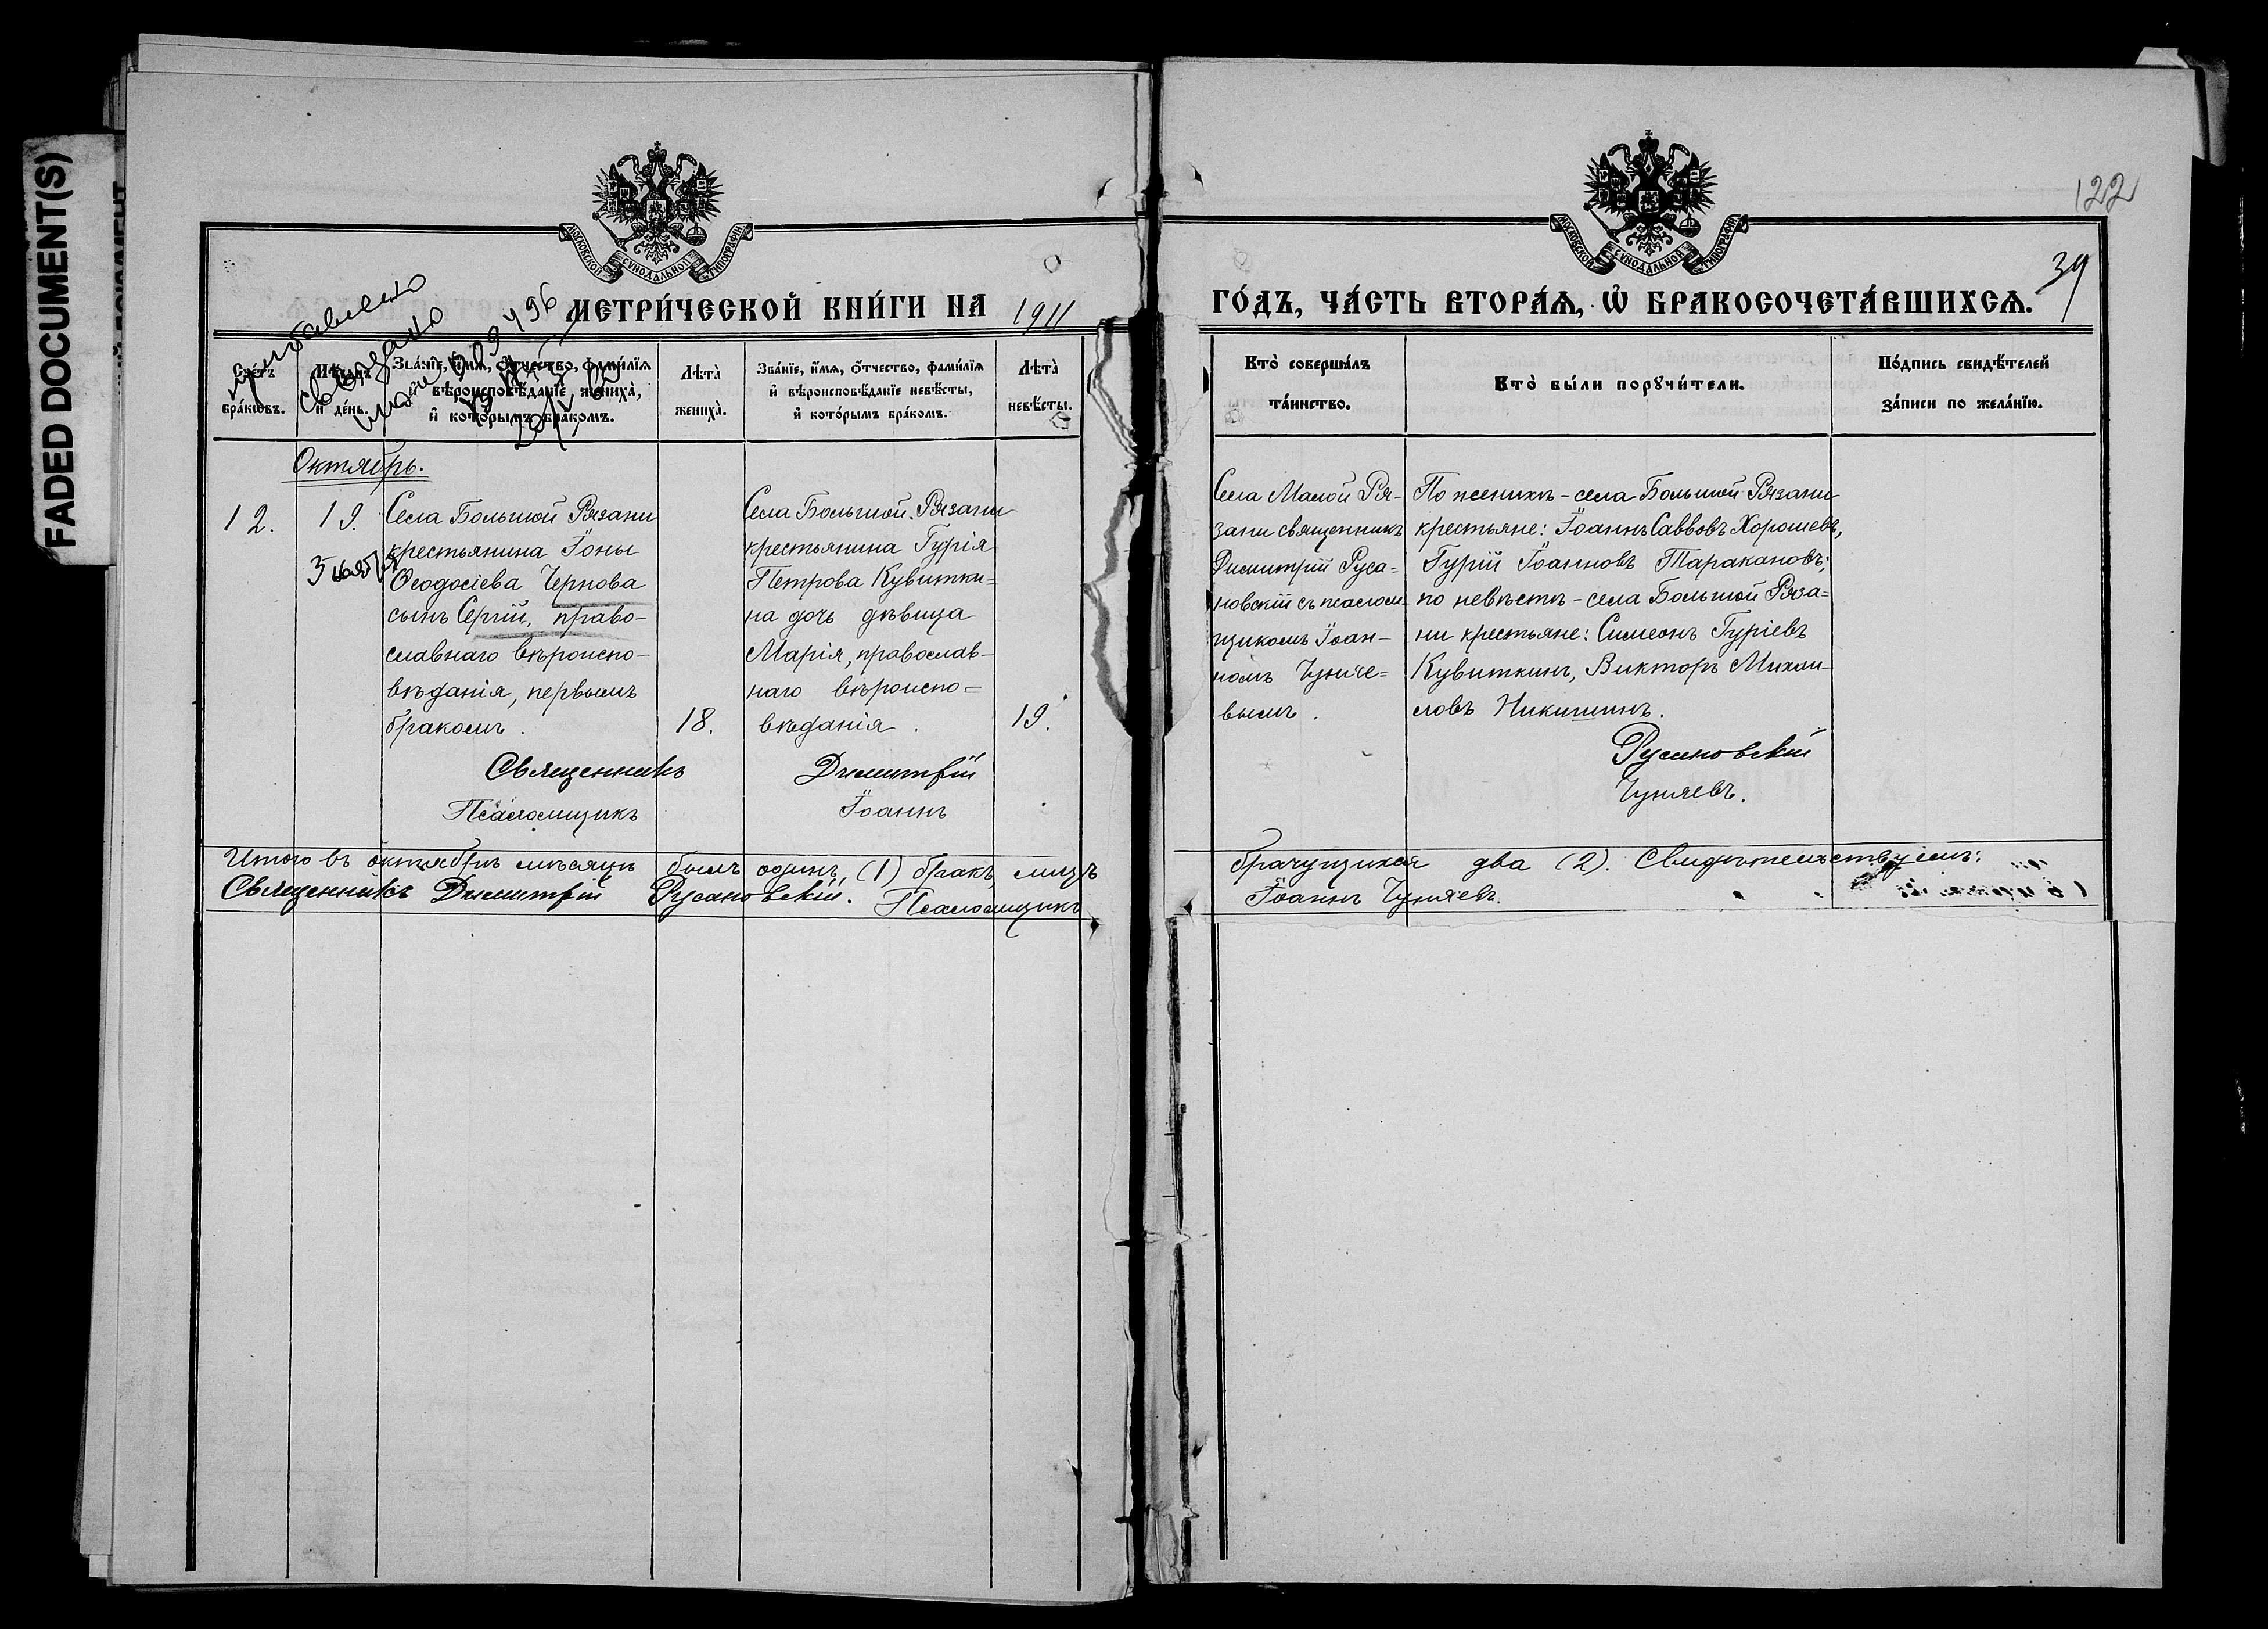 FADED DOCUMENT(S)
МОСКОВСКОЙ СѴНОДАЛЬНОЙ ТИПОГРАФІИ
МОСКОВСКОЙ СѴНОДАЛЬНОЙ ТИПОГРАФІИ
122
39
МЕТРИ́ЧЕСКОЙ КНИ́ГИ НА 1911
ГО́ДЪ, ЧА́СТЬ ВТОРА́Ѧ, Ѡ БРАКОСОЧЕТА́ВШИХСѦ.
Счетъ бра́ковъ.
Мѣсяцъ и де́нь.
Зва́нїе, и҆́мѧ, ѻ҆́тчество, фами́лїѧ и҆ вѣроисповѣ́данїе жениха̀, и҆ кото́рымъ бра́комъ.
Лѣта̀ жениха̀.
Зва́нїе, и҆́мѧ, ѻ҆́тчество, фами́лїѧ и҆ вѣроисповѣ́данїе невѣ́сты, и҆ кото́рымъ бра́комъ.
Лѣта̀ невѣ́сты.
Кто̀ соверша́лъ та́инство.
Кто̀ бы́ли порꙋчи́тели.
По́дпись свидѣ́телей за́писи по жела́нїю.
Октябрь.
12.
19.
Села Большой Рязани
крестьянина Іоны
Ѳеодосіева Чернова
сынъ Сергій, право-
славнаго вѣроиспо-
вѣданія, первымъ
бракомъ.
18.
Села Большой Рязани
крестьянина Гурія
Петрова Кувитки=
на дочь дѣвица
Марія, православ-
наго вѣроиспо=
вѣданія.
19.
Села Малой Ря-
зани священникъ
Димитрій Руса=
новскій съ псалом-
щикомъ Іоан-
номъ Чуняе=
вымъ.
По женихѣ - села Большой Рязани
крестьяне: Іоаннъ Саввовъ Хорошевъ,
Гурій Іоанновъ Таракановъ;
по невѣстѣ - села Большой Ряза=
ни крестьяне: Симеонъ Гуріевъ
Кувиткинъ, Викторъ Михаи-
ловъ Никишинъ.
Священникъ Димитрій Русановскій
Псаломщикъ Іоаннъ Чуняевъ.
Итого въ октябрѣ мѣсяцѣ былъ одинъ, (1) бракъ, лицъ брачущихся два (2). Свидѣтельствуемъ:
Священникъ Димитрій Русановскій. Псаломщикъ Іоаннъ Чуняевъ.